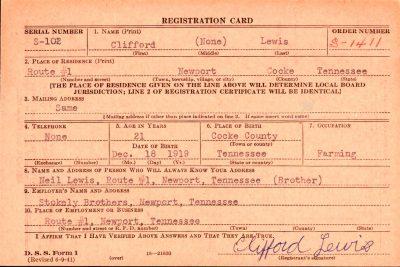 REGISTRATION CARD
SERIAL NUMBER 1. NAME (Print) ORDER NUMBER
S-102 Clifford (None) Lewis S-1411
(First) (Middle) (Last)
2. PLACE OF RESIDENCE (Print)
Route #1 Newport Cocke Tennessee
(Number and street) (Town, township, village, or city) (County) (State)
[THE PLACE OF RESIDENCE GIVEN ON THE LINE ABOVE WILL DETERMINE LOCAL BOARD
JURISDICTION; LINE 2 OF REGISTRATION CERTIFICATE WILL BE IDENTICAL]
3. MAILING ADDRESS
Same
[Mailing address if other than place indicated on line 2. If same insert word same]
4. TELEPHONE 5. AGE IN YEARS 6. PLACE OF BIRTH 7. OCCUPATION
None 21 Cocke County
DATE OF BIRTH (Town or county)
Dec. 18 1919 Tennessee Farming
(Exchange) (Number) (Mo.) (Day) (Yr.) (State or country)
8. NAME AND ADDRESS OF PERSON WHO WILL ALWAYS KNOW YOUR ADDRESS
Neil Lewis, Route #1, Newport, Tennessee (Brother)
9. EMPLOYER'S NAME AND ADDRESS
Stokely Brothers, Newport, Tennessee
10. PLACE OF EMPLOYMENT OR BUSINESS
Route #1, Newport, Tennessee
(Number and street or R. F. D. number) (Town) (County) (State)
I AFFIRM THAT I HAVE VERIFIED ABOVE ANSWERS AND THAT THEY ARE TRUE.
D. S. S. Form 1 Clifford Lewis
(Revised 6-9-41) (over) (Registrant's signature)